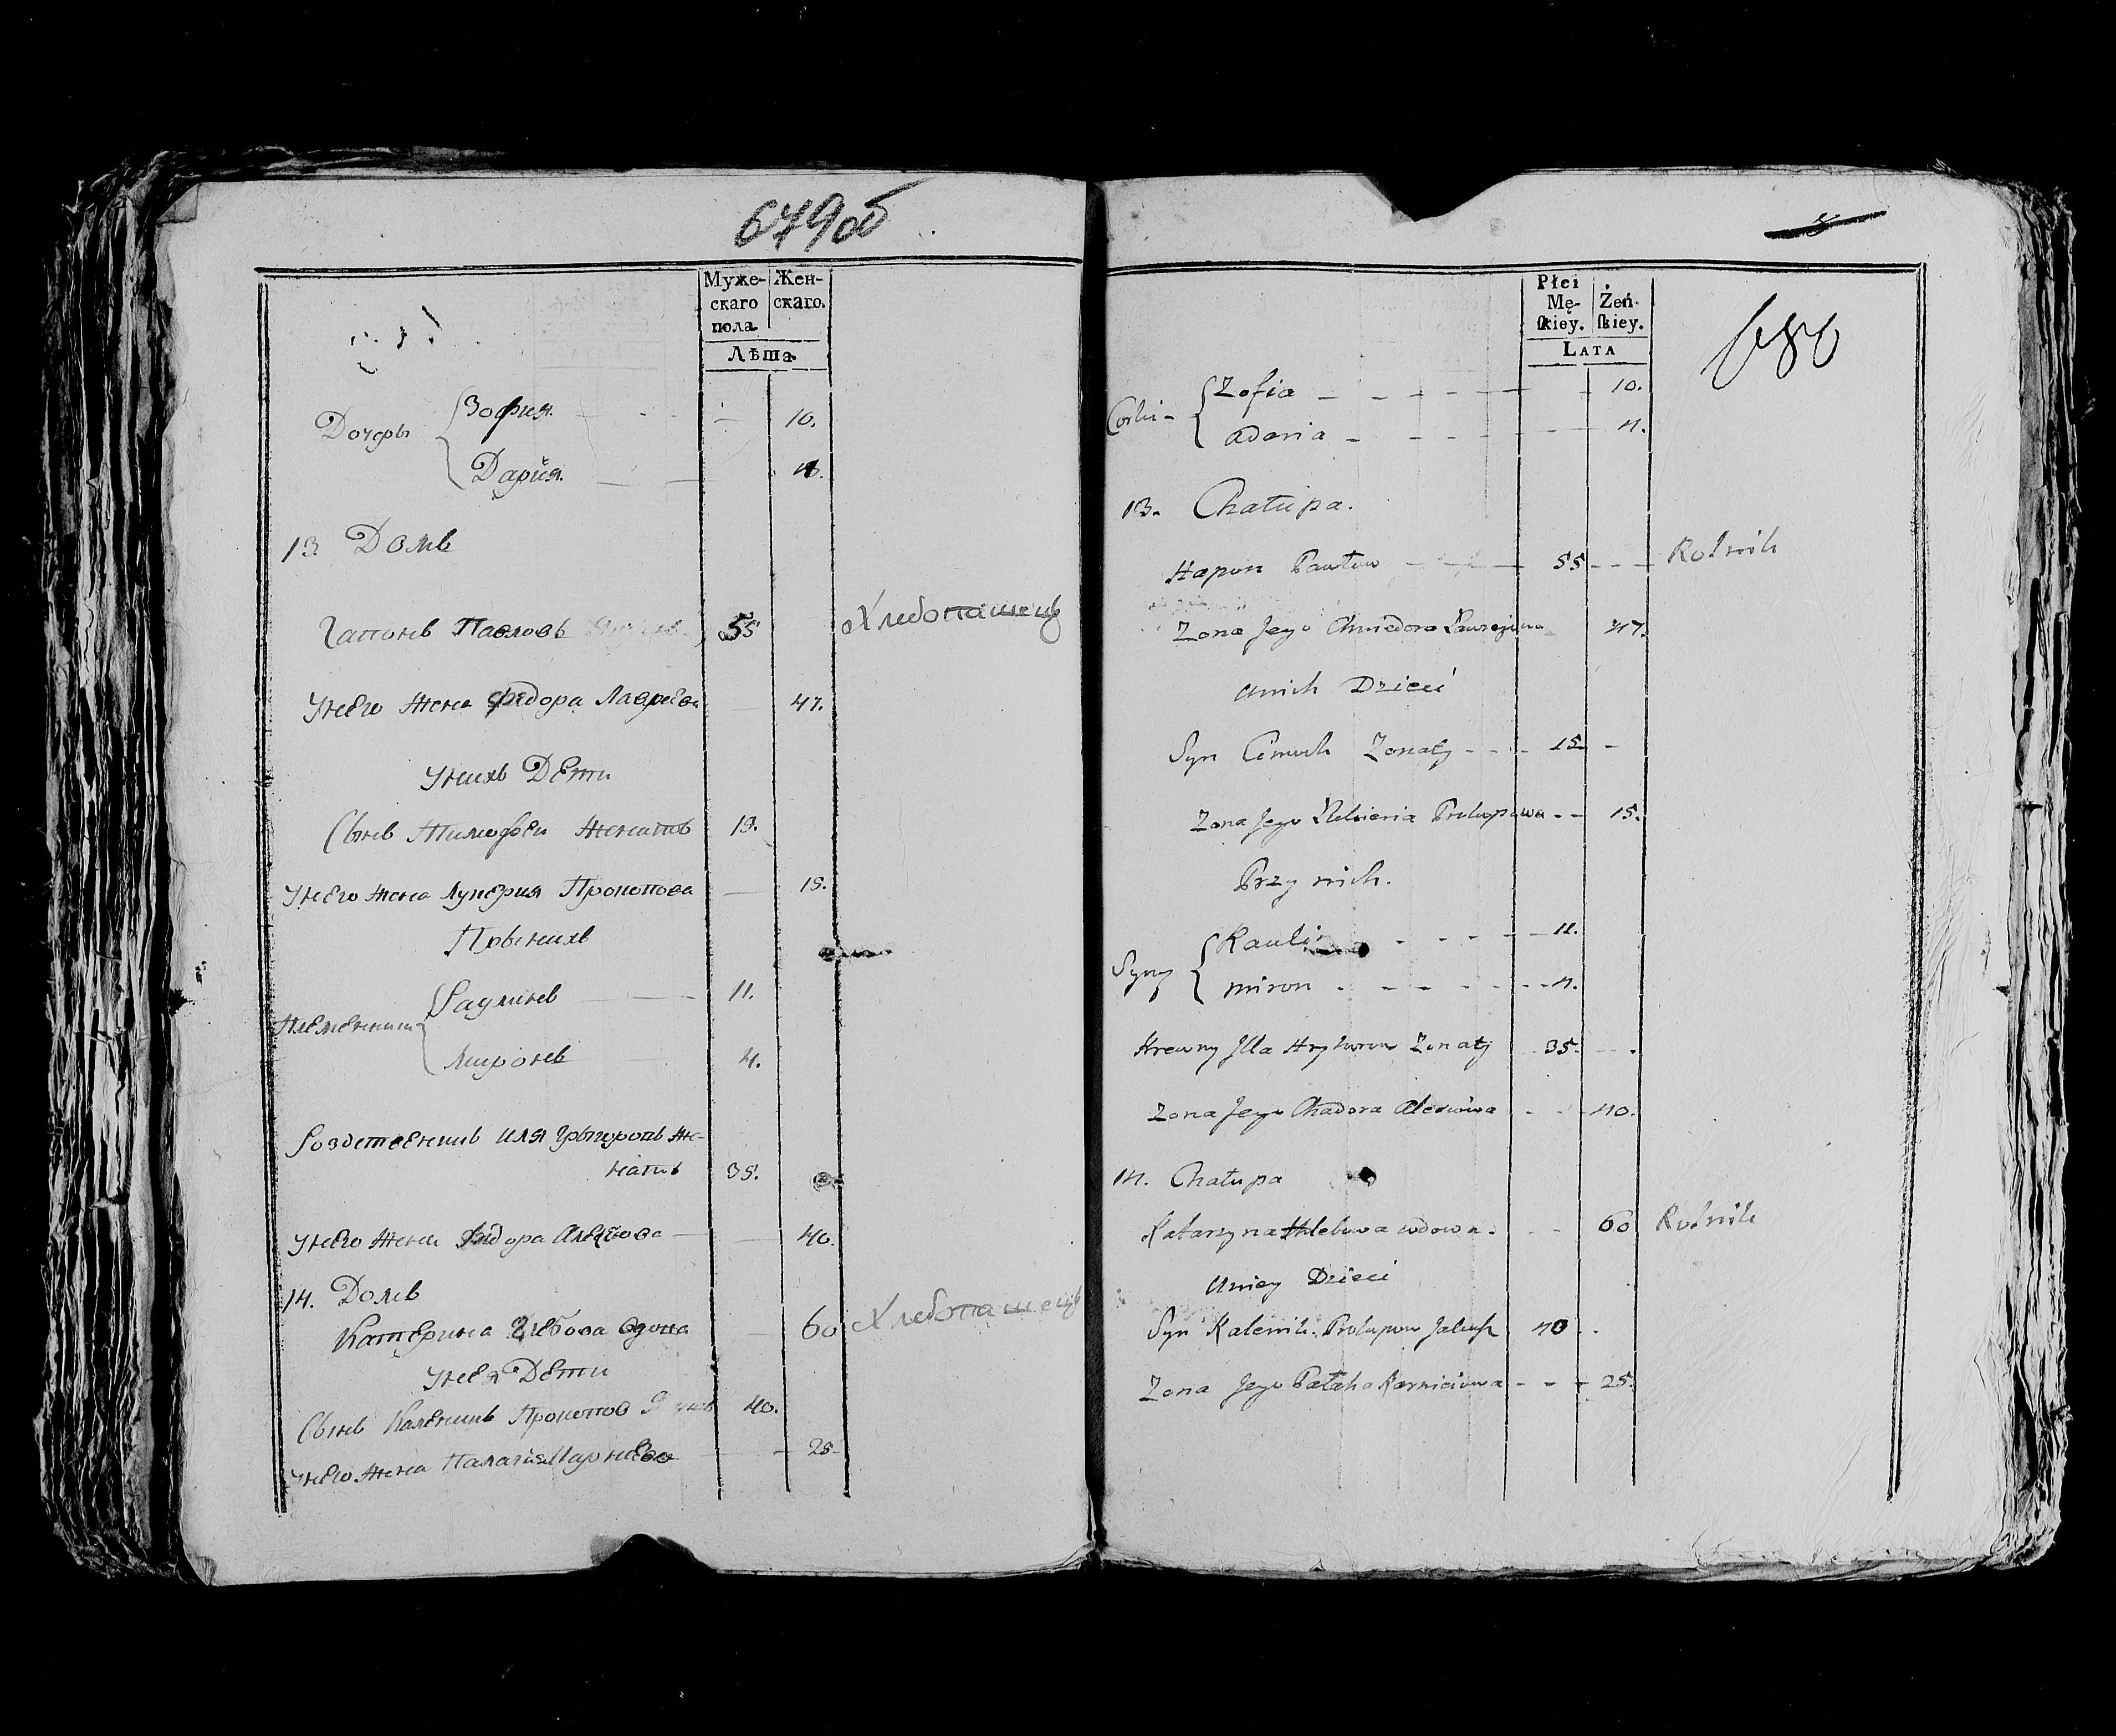 679об
Муже-
скаго
пола.
Жен-
скаго.
Лѣта.
Дочеры
Зофия 10.
Дария. 4.
13. Домъ
Гапонъ Павловъ 55 Хлебопашецъ
Унего жена Федора Лавреева 47.
Унихъ Дети
Сынъ Тимофей женатъ 19.
Унего жена Лукерия Прокопова 15.
Прыныхъ
Племенники
Раулинъ 11.
Миронъ 4.
Родственникъ Иля Грыгоровъ же-
натъ 35.
Унего жена Федора Алексѣева 40.
14. Домъ
Катерина Глебова вдова 60 Хлебопашецъ
Унея Дети
Сынъ Каленикъ Прокопов 40.
Унего жена Палагия Карнеева 25
Płci
Mę-
ſkiey.
Żeń-
ſkiey.
LATA
680
Corki
Zofia 10.
Daria 4.
13. Chałupa.
Hapon Pawłow 55 Rolnik
Zona Jego Chwiedora Ławrejowa 47.
Unich Dzieci
Syn Cimoch Zonaty 15
Zona Jego Prokopowa 15.
Przy nich.
Syny
Raulin 11.
Miron 4.
Krewny Illa Hryhorow Zonaty 35.
Zona Jego Chadora Alexowa 40.
14. Chałupa
Katarzyna Hlebowa wdowa. 60 Rolnik
Uniey Dzieci
Syn Kalenik Prokopow 40
Zona Jego Połaha Karnieiowa 25.